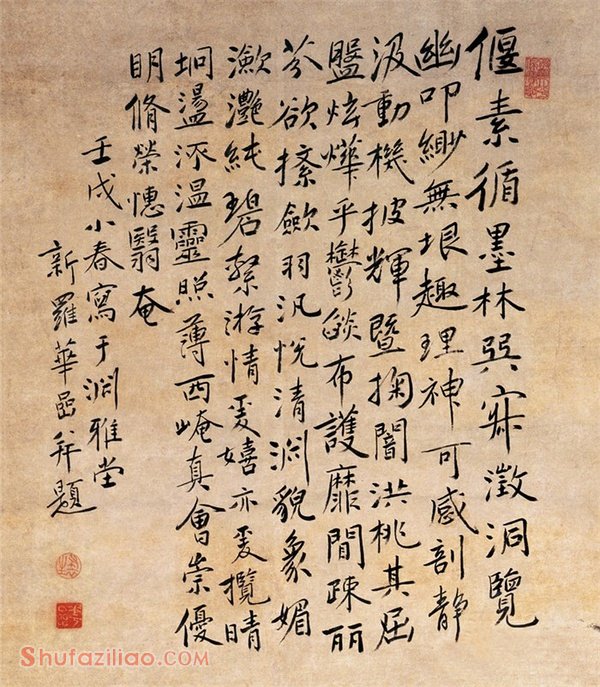 偃素循墨林巽寂澂洞覽
幽叩緲無垠趣理神可感剖靜
汲動機披輝暨掬闇洪桃其屈
盤炫燁乎鬱燄布護靡閒疎丽
芬欲搽歛羽汎悅清渊貌象媚
漱灧純碧繁游情爰嬉亦爰攬晴
坰盪泝溫靈照薄西崦真會崇優
明脩榮憓翳奄
壬戌小春寫于渊雅堂
新羅華喦并題
Shufaziliao.com